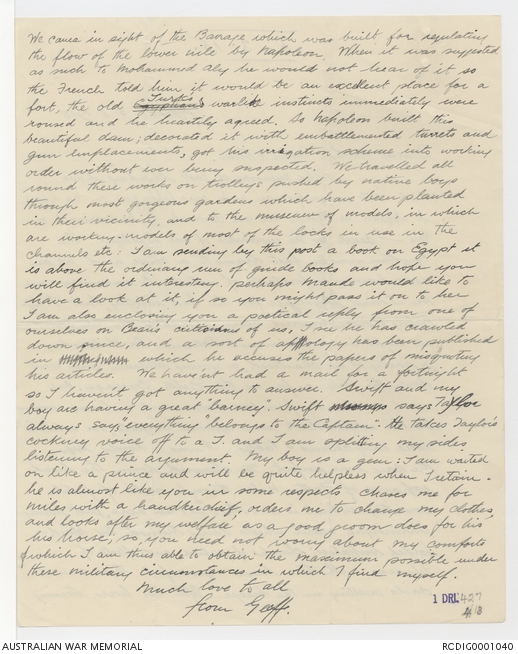 We came in sight of the Barrage which was built for regulating
the flow of the lower nile by Napoleon. When it was suggested
as such to Mohammed Aly he would not hear of it so
the French told him it would be an excellent place for a
fort, the old Egyptian's Turk's warlike instincts immediately were
roused and he heartely agreed. So Napoleon built this
beautiful dam; decorated it with embattlemented turrets and
gun emplacements, got his irrigation scheme into working
order without ever being suspected. We travelled all
round these works on trolleys pushed by native boys
through most gorgeous gardens which have been planted
in their vicinity, and to the museum of models, in which
are working-models of most of the locks in use in the
channels etc: I am sending by this post a book on Egypt it
is above the ordinary run of guide books and hope you
will find it interesting. perhaps Maude would like to
have a look at it, if so you might pass it on to her
I am also enclosing you a poetical reply from one of
ourselves on Bean's criticisms of us, I see he has crawled
down since, and a sort of apology has been published
in which he accuses the papers of misquoting
his articles. We haven't had a mail for a fortnight
so I haven't got anything to answer. Swift and my
boy are having a great "barney". Swift says Taylor
always says everything "belongs to the Captain". He takes Taylor's
cockney voice off to a T. and I am splitting my sides
listening to the argument. My boy is a gem: I am waited
on like a prince and will be quite helpless when I return.
he is almost like you in some respects chases me for
miles with a handkerchief, orders me to change my clothes,
and looks after my welfare as a good groom does for his
his horse; so, you need not worry about my comforts
which I am thus able to obtain the maximum possible under
these military circumstances in which I find myself.
Much love to all
from Geoff.
1 DRL 427
AUSTRALIAN WAR MEMORIAL
RCDIG0001040